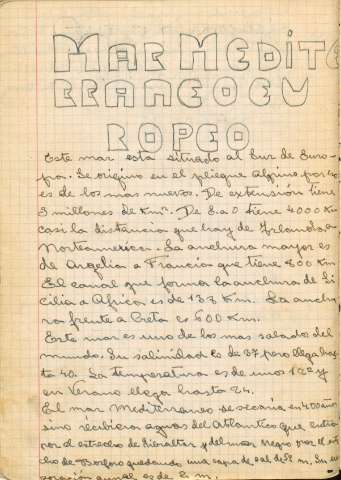 MAR MEDITE
RRANEO EU
ROPEO
Este mar está situado al Sur de Euro-
pa. Se origino en el pliegue alpino por lo
es de los mas nuevos. De extensión tiene
3 millones de Km². De E. a O tiene 4000 Km
casi la distancia que hay de Irlanda a
Norteamerica. La anchura mayor es
de Argelia a Francia que tiene 800 Km
El canal que forma la anchura de Si
cilia a Africa es de 138 Km. La anchu
ra frente a Creta es 600 Km.
Este mar es uno de los mas salados del
mundo. Su salinidad es de 37 pero llega has
ta 40. La temperatura es de unos 12º y
en Verano llega hasta 24.
El mar Mediterraneo se secaria en 4000 años
sino recibiera aguas del Atlantico que entra
por el estrecho de Gibraltar y del mar Negro por el estre
cho de Bosforo quedando una capa de sal de m. Su eva
poración anual es de 2 m.